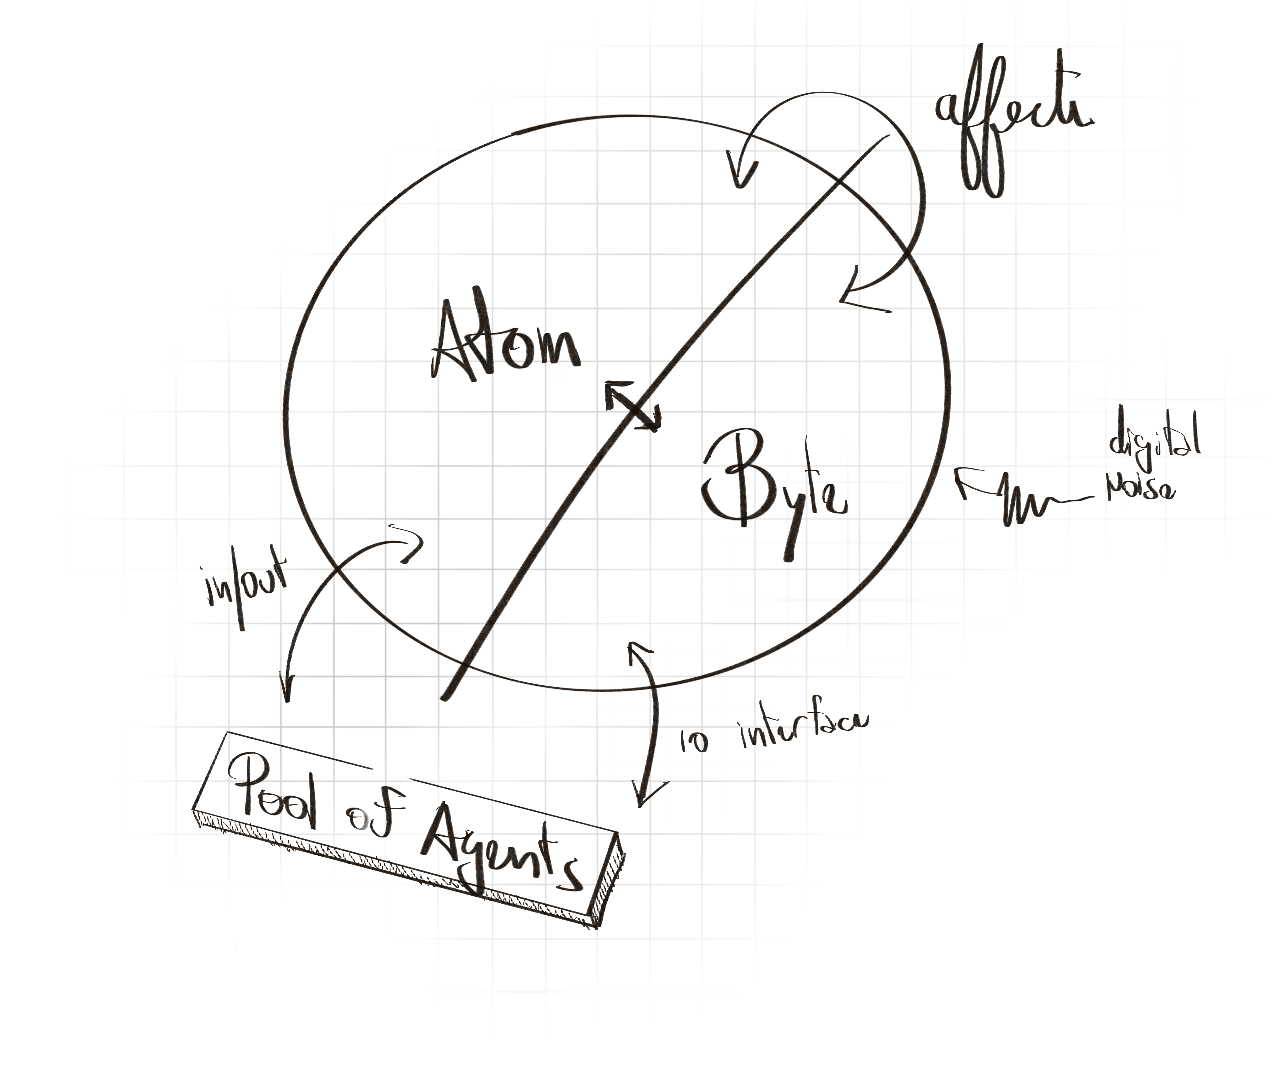 affects
Atom
Byte
digital
Noise
in/out
IO interface
Pool of Agents